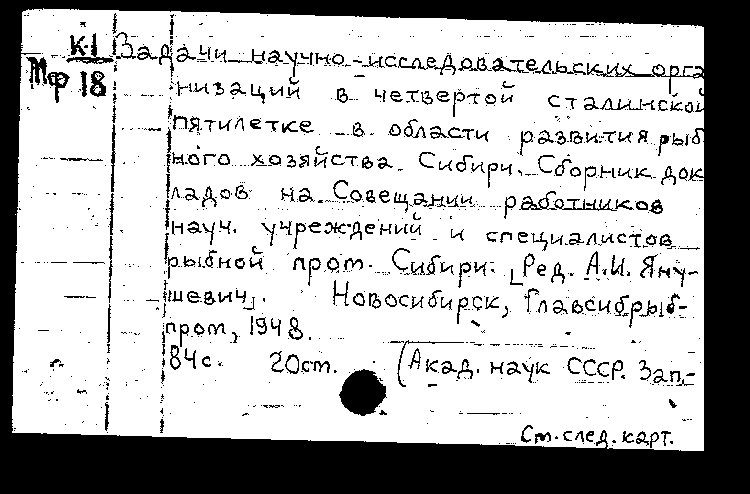 К-1
Мф 18
Задачи научно-исследовательских орга
низаций в четвертой сталинской
пятилетке в области развития рыб
ного хозяйства Сибири. Сборник док
ладов на Совещании работников
науч. учреждений и специалистов
рыбной пром. Сибири. [Ред. А.И. Яну-
шевич]. Новосибирск, Главсибрыб-
пром, 1948.
84с. 20см. (Акад. наук СССР. Зап.-
См. след. карт.